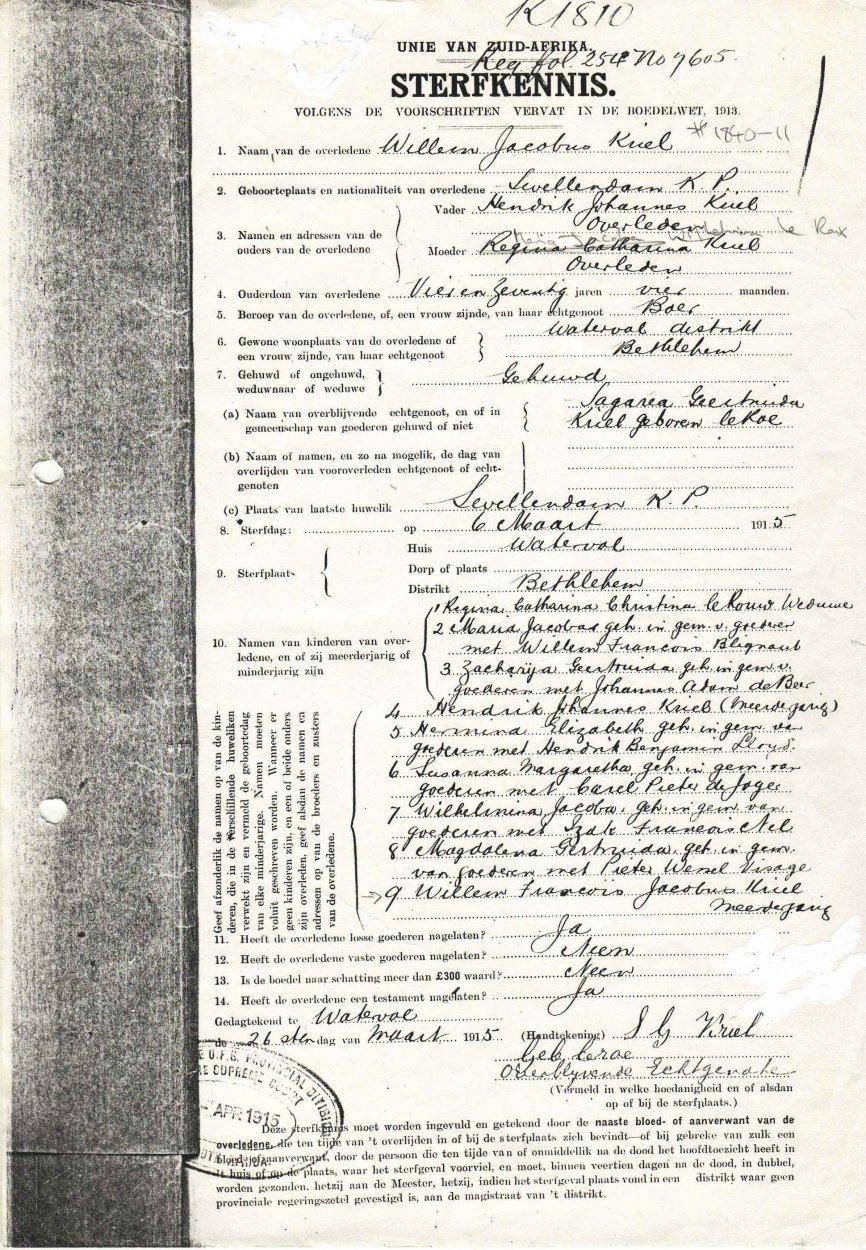 K1810
UNIE VAN ZUID-AFRIKA.
Reg. fol. 254 No 7605.
STERFKENNIS.
VOLGENS DE VOORSCHRIFTEN VERVAT IN DE BOEDELWET, 1913.
* 1840-11
1. Naam van de overledene Willem Jacobus Kriel
2. Geboorteplaats en nationaliteit van overledene Swellendam K. P.
3. Namen en adressen van de ouders van de overledene
Vader Hendrik Johannes Kriel
Overleden
le Roux
Moeder Regina Catharina Kriel
Overleden
4. Ouderdom van overledene Vier en Zeventig jaren vier maanden.
5. Beroep van de overledene, of, een vrouw zijnde, van haar echtgenoot Boer
6. Gewone woonplaats van de overledene of een vrouw zijnde, van haar echtgenoot
Waterval distrikt
Bethlehem
7. Gehuwd of ongehuwd, weduwnaar of weduwe
Gehuwd
(a) Naam van overblijvende echtgenoot, en of in gemeenschap van goederen gehuwd of niet
Sagarea Geertruida
Kriel geboren leRoe
(b) Naam of namen, en zo na mogelik, de dag van overlijden van vooroverleden echtgenoot of echtgenoten
(c) Plaats van laatste huwelik Swellendam K. P.
8. Sterfdag: op 6 Maart 1915
9. Sterfplaats
Huis Waterval
Dorp of plaats
Distrikt Bethlehem
10. Namen van kinderen van overledene, en of zij meerderjarig of minderjarig zijn
1 Regina Catharina Christina leRouw Weduwe
2 Maria Jacoba geh. in gem. v. goederen
met Willem Francois Blignaut
3 Zacharya Geertruida geh. in gem. v.
goederen met Johannes Adam de Beer
4 Hendrik Johannes Kriel (Meerderjarig)
5 Hermina Elizabeth geh. in gem. van
goederen met Hendrik Benjamin Lloyd.
6 Susanna Margaretha geh. in gem. van
goederen met Carel Pieter de Jager
7 Wilhelmina Jacoba. geh. in gem. van
goederen met Izak Francois Nel
8 Magdalena Gertruida. geh. in gem.
van goederen met Pieter Wessel Visage
9 Willem Francois Jacobus Kriel
Meerderjarig
Geef afzonderlik de namen op van de kinderen, die in de verschillende huweliken
verwekt zijn en vermeld de geboortedag
van elke minderjarige. Namen moeten
voluit geschreven worden. Wanneer er
geen kinderen zijn, en een of beide ouders
zijn overleden, geef alsdan de namen en
adressen op van de broeders en zusters
van de overledene.
11. Heeft de overledene losse goederen nagelaten? Ja
12. Heeft de overledene vaste goederen nagelaten? Neen
13. Is de boedel naar schatting meer dan £300 waard? Neen
14. Heeft de overledene een testament nagelaten? Ja
Gedagtekend te Waterval
de 26 sten dag van Maart 1915
(Handtekening) S G Kriel
Geb. Leroe
Overblyvende Echtgenote
(Vermeld in welke hoedanigheid en of alsdan
op of bij de sterfplaats.)
O.F.S. PROVINCIAL DIVISION
SUPREME COURT
APR 1915
Deze sterfkennis moet worden ingevuld en getekend door de naaste bloed- of aanverwant van de
overledene, die ten tijde van 't overlijden in of bij de sterfplaats zich bevindt—of bij gebreke van zulk een
bloed- of aanverwant, door de persoon die ten tijde van of onmiddellik na de dood het hoofdtoezicht heeft in
't huis of op de plaats, waar het sterfgeval voorviel, en moet, binnen veertien dagen na de dood, in dubbel,
worden gezonden, hetzij aan de Meester, hetzij, indien het sterfgeval plaats vond in een distrikt waar geen
provinciale regeringszetel gevestigd is, aan de magistraat van 't distrikt.